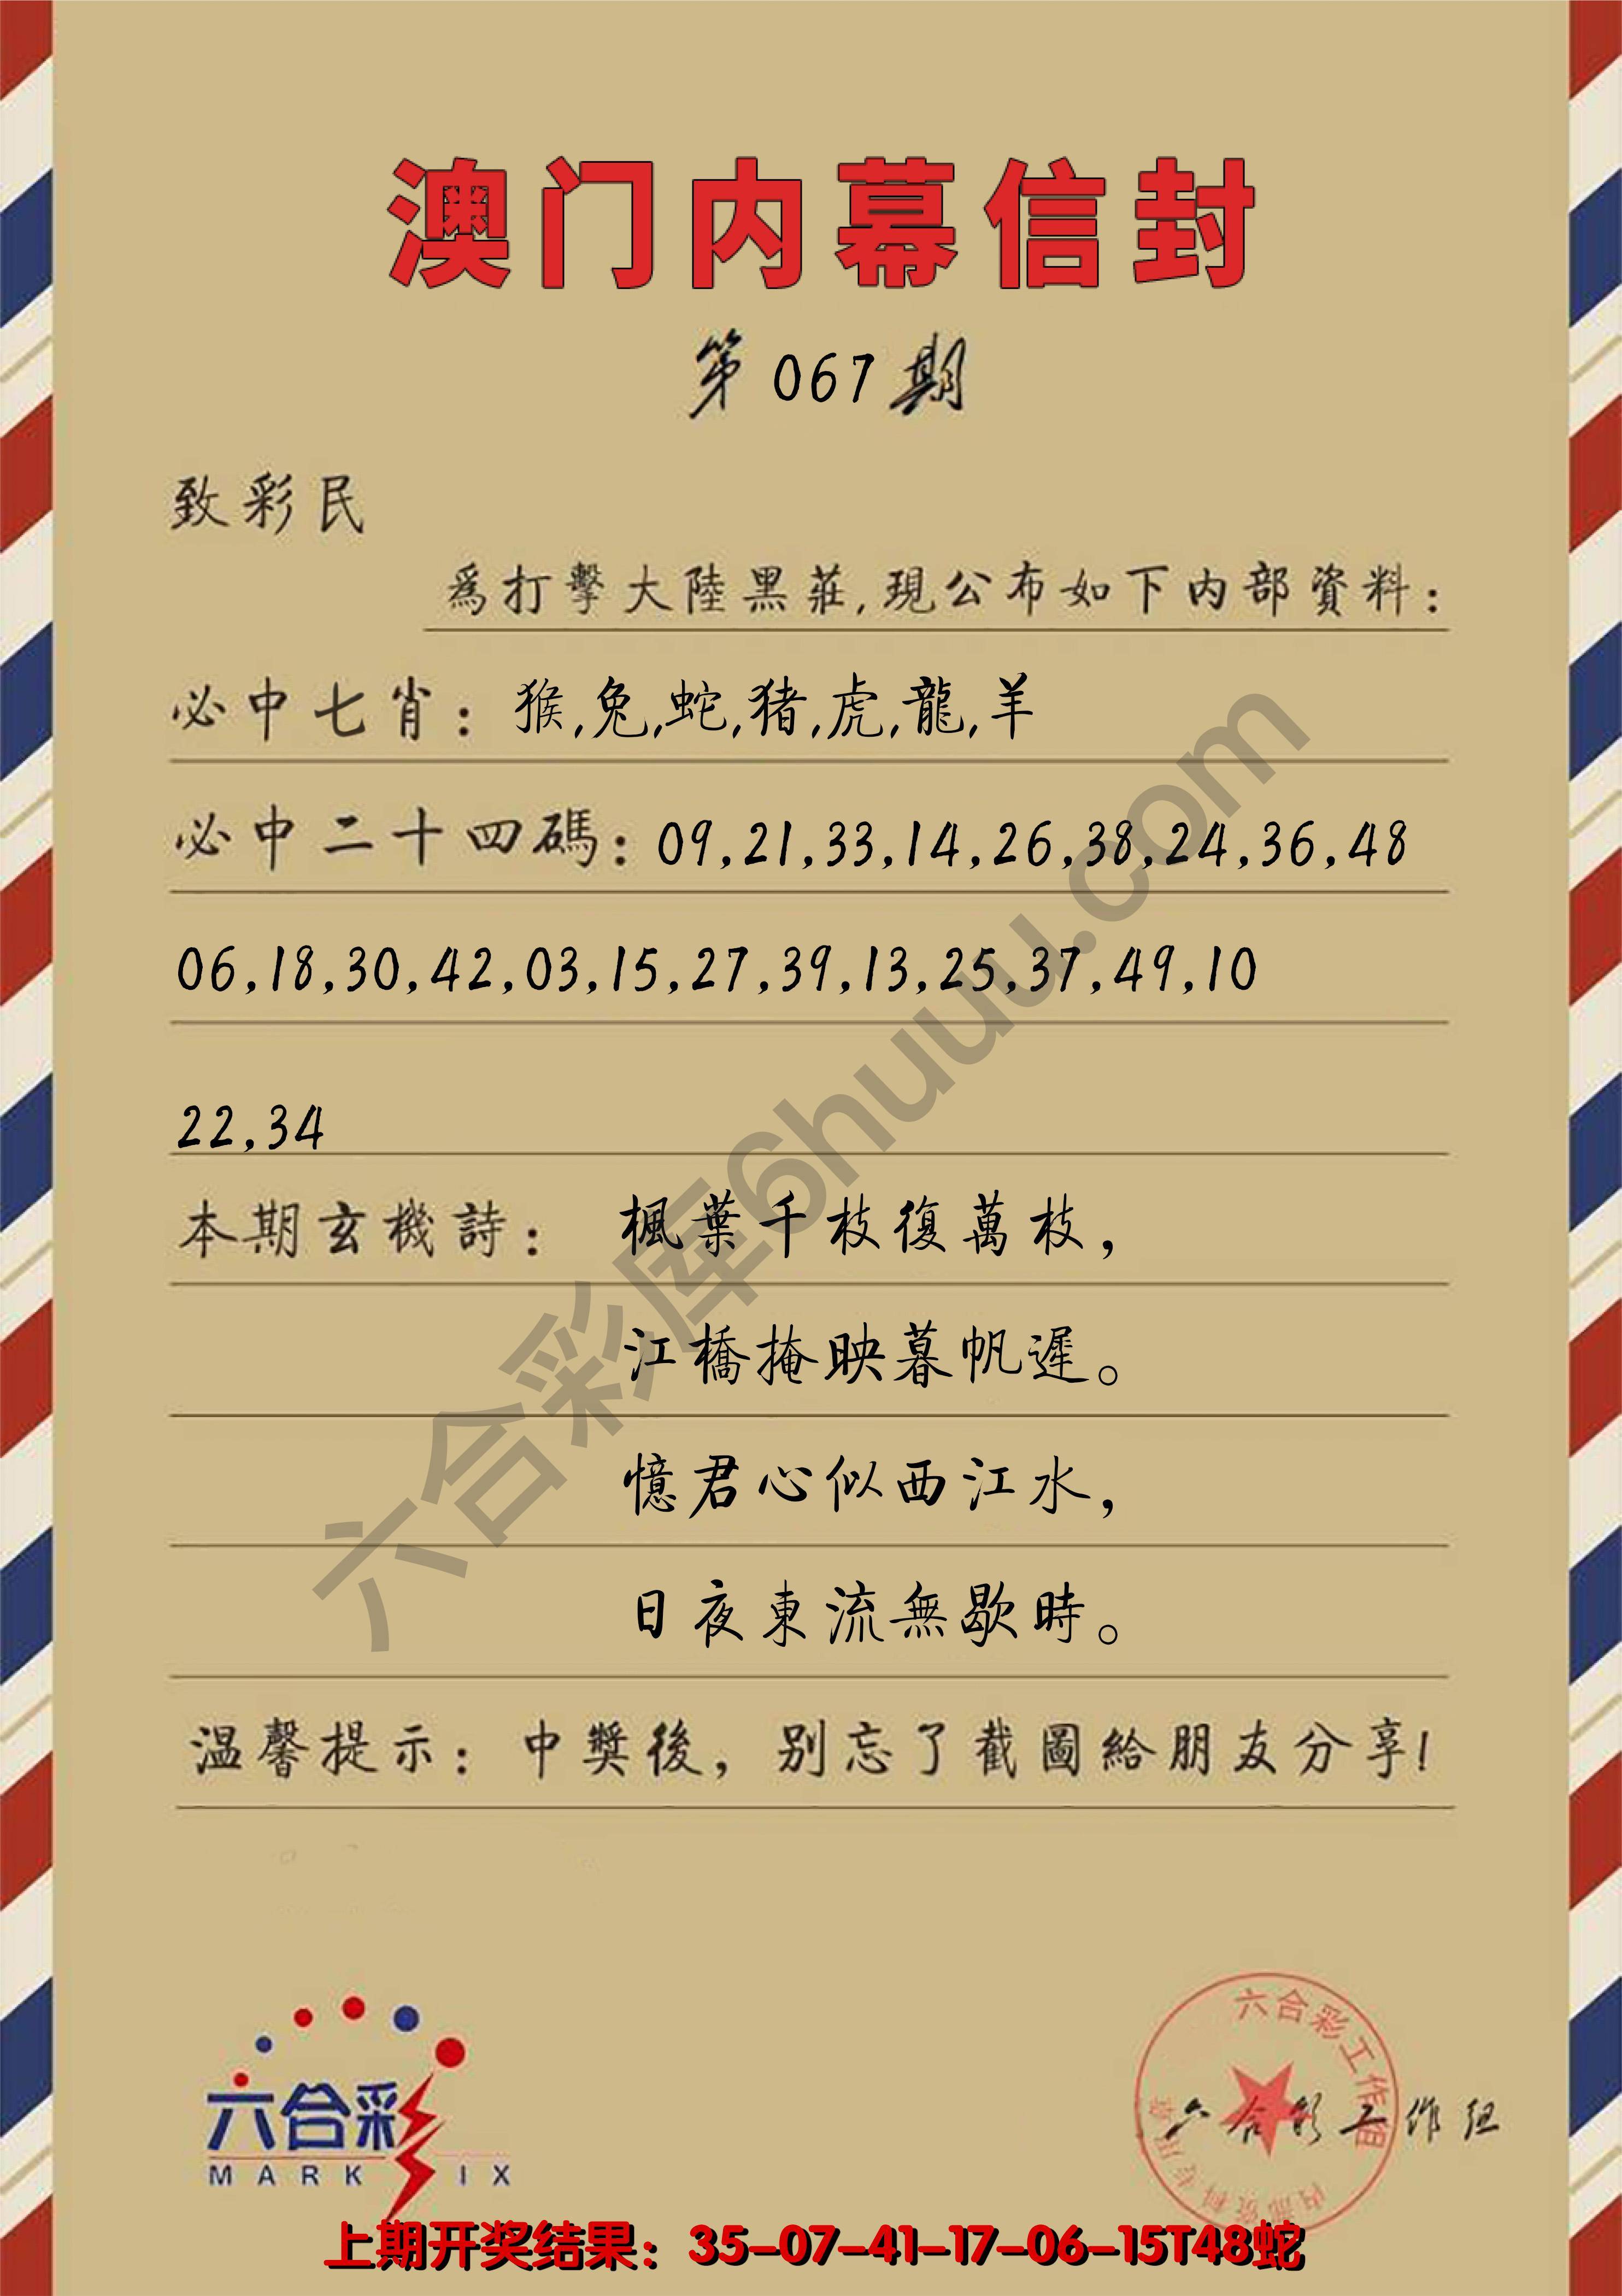 澳门内幕信封
第067期
致彩民
爲打擊大陸黑莊,現公布如下内部資料:
必中七肖: 猴,兔,蛇,猪,虎,龍,羊
必中二十四碼: 09,21,33,14,26,38,24,36,48
06,18,30,42,03,15,27,39,13,25,37,49,10
22,34
本期玄機詩: 楓葉千枝復萬枝,
江橋掩映暮帆遲。
憶君心似西江水,
日夜東流無歇時。
温馨提示: 中獎後, 别忘了截圖給朋友分享!
六合彩库6huuu.com
六合彩
MARK IX
六合彩工作组
内部资料专用章
六合彩工作组
上期开奖结果: 35-07-41-17-06-15T48蛇